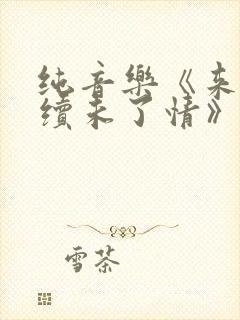 纯音樂《来
續未了情》
雪茶